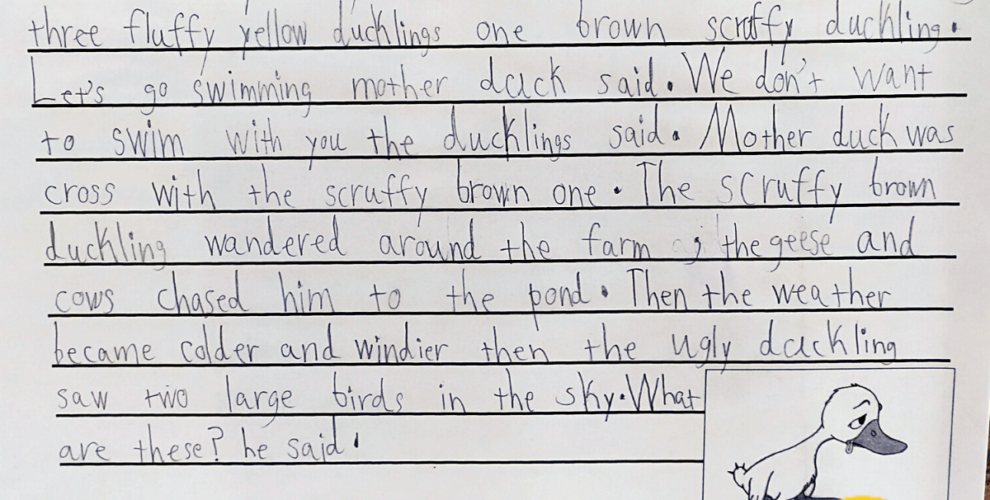 three fluffy yellow ducklings one brown scruffy duckling.
Let's go swimming mother duck said. We don't want
to swim with you the ducklings said. Mother duck was
cross with the scruffy brown one. The scruffy brown
duckling wandered around the farm , the geese and
cows chased him to the pond. Then the weather
became colder and windier then the ugly duckling
saw two large birds in the sky. What
are these? he said.